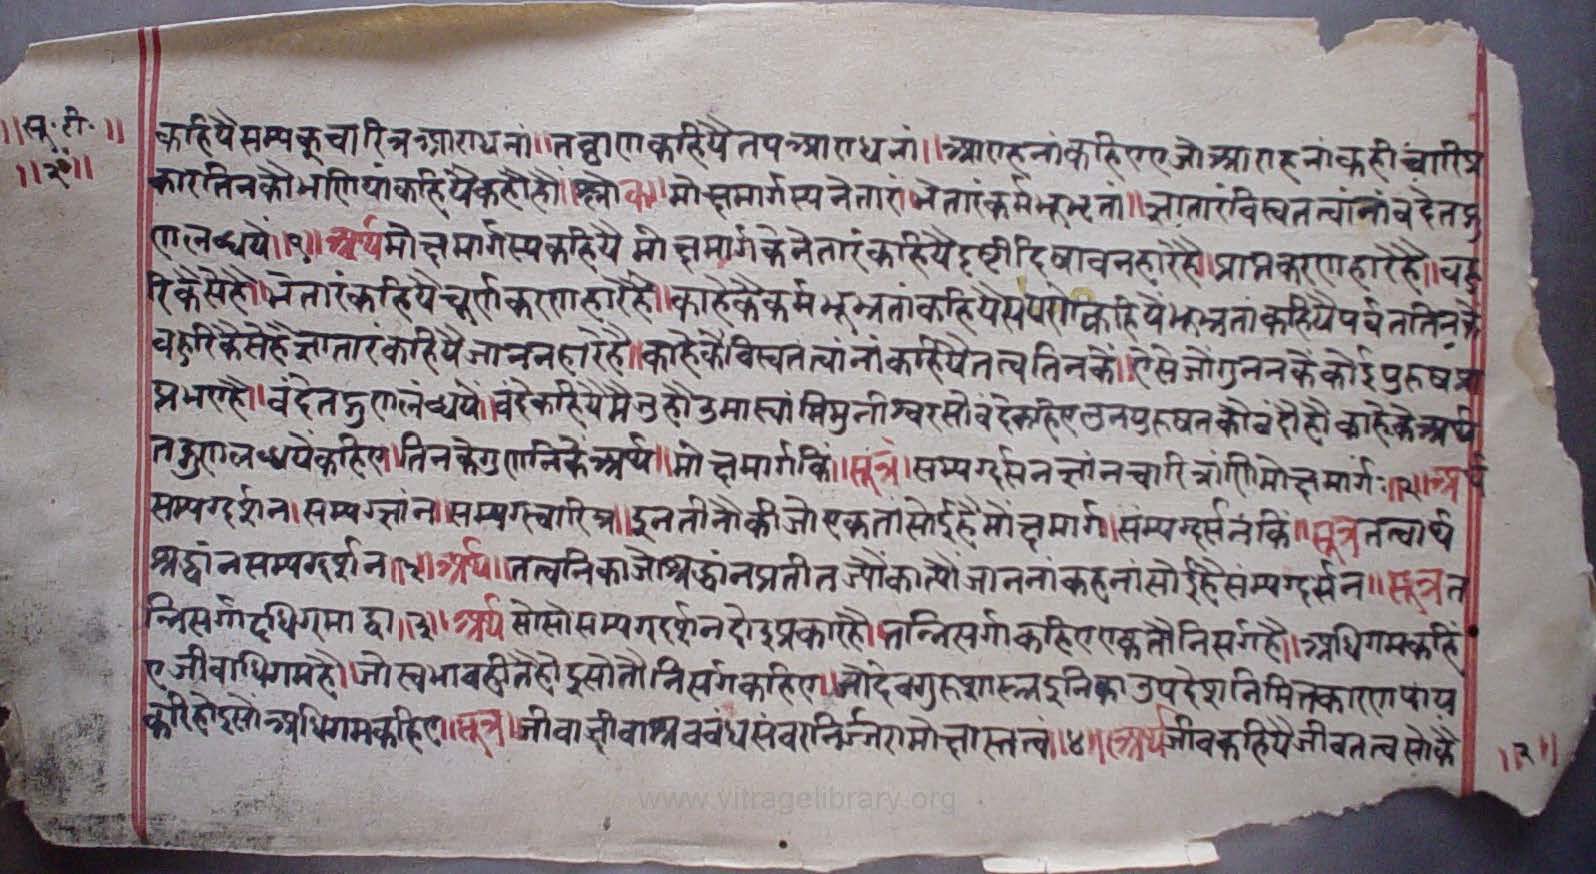 ॥सू॰टी॰॥
॥२॥
कहियै सम्यक् चारित्र आराधनां॥ तवाराण कहियै तप आराधनां॥ आराहनां कहिए जो आराहनां कही च्यारि प्र
कार तिनकौ भाणियां कहियै कहौ हौ॥ श्लोक॥ मोक्षमार्गस्य नेतारं भेतारं कर्मभूभृतां॥ ज्ञातारं विस्वतत्वांनां वंदे तद्गु
णालब्धये॥१॥ अर्थ मोक्षमार्गस्य कहियै मोक्षमार्ग के नेतारं कहियै दिषावनहारे है॥ प्राप्त करणहारे है॥ बहु
रि कैसे है॥ भेतारं कहियै चूर्ण करणहारे है॥ काहे कै कर्मभूभृतां कहियै कहियै भूभृतां कहियै पर्वत तिनके
बहुरि कैसे है ज्ञातारं कहियै जाननहारे है॥ काहे कै विस्वतत्वांनां कहियै तत्व तिनकै॥ ऐसे जो गुननकै कोई पुरुष प्रा
प्त भए है॥ वंदे तद्गुणालब्धये॥ वंदे कहियै मै जु हौ उमास्वांमि मुनीश्वर सो वंदे कहिए उन पुरुषन कौ वंदौ हौ काहे कै अर्थि
तद्गुणालब्धये कहिए। तिनके गुणनि कै अर्थ॥ मोक्षमार्ग किं॥ सूत्र॥ सम्यग्दर्सनज्ञांनचारित्रांणि मोक्षमार्गः॥१॥ अर्थ
सम्यग्दर्शन। सम्यग्ज्ञांन। सम्यग्चारित्र॥ इन तीनौ की जो एकता सोई है मोक्षमार्ग। सम्यग्दर्सनं किं॥ सूत्र तत्वार्थ
श्रद्धांन सम्यग्दर्शन॥२॥ अर्थ॥ तत्वनि का जो श्रद्धांन प्रतीत ज्यौं का त्यौं जाननां कहनां सोई है सम्यग्दर्सन॥ सूत्र त
न्निसर्गादधिगमाद्वा॥३॥ अर्थ सो सो सम्यगदर्शन दोइ प्रकार है॥ तन्निसर्गा कहिए एक तौ निसर्ग है॥ अधिगम कहि
ए जीवाधिगम है॥ जो स्वभाव ही तै होइ सो तौ निसर्ग कहिए॥ जो देव गुरु शास्त्र इनि का उपदेश निमित्त कारण पाय
करि होइ सो अधिगम कहिए॥ सूत्र॥ जीवाजीवाश्रवबंधसंवरनिर्ज्जरामोक्षास्तत्वं॥४॥ अर्थ जीव कहियै जीवतत्व सो कै
॥२॥
www.vitragelibrary.org